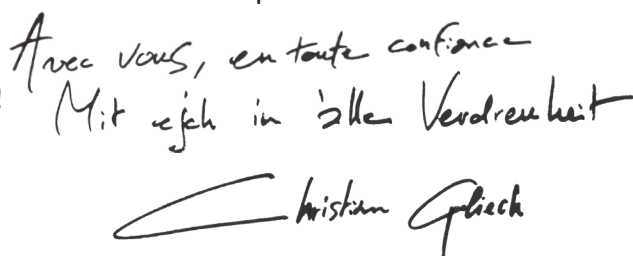 Avec vous, en toute confiance
Mit ejch in àlle Verdreuheit
Christian Gliech